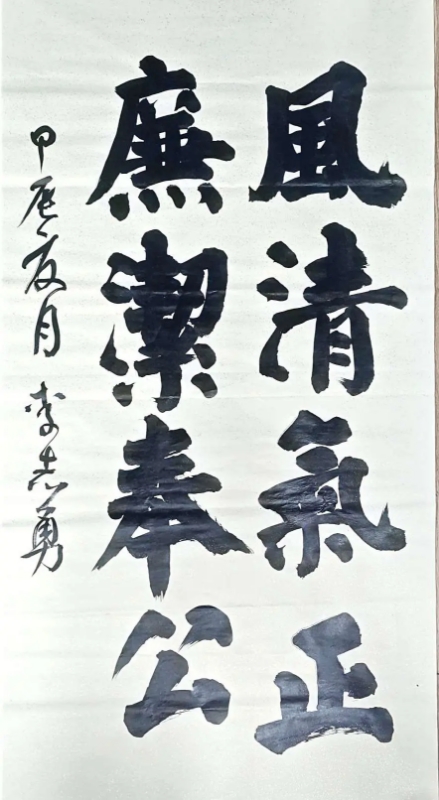 風清氣正
廉潔奉公
甲辰夏月 李志勇